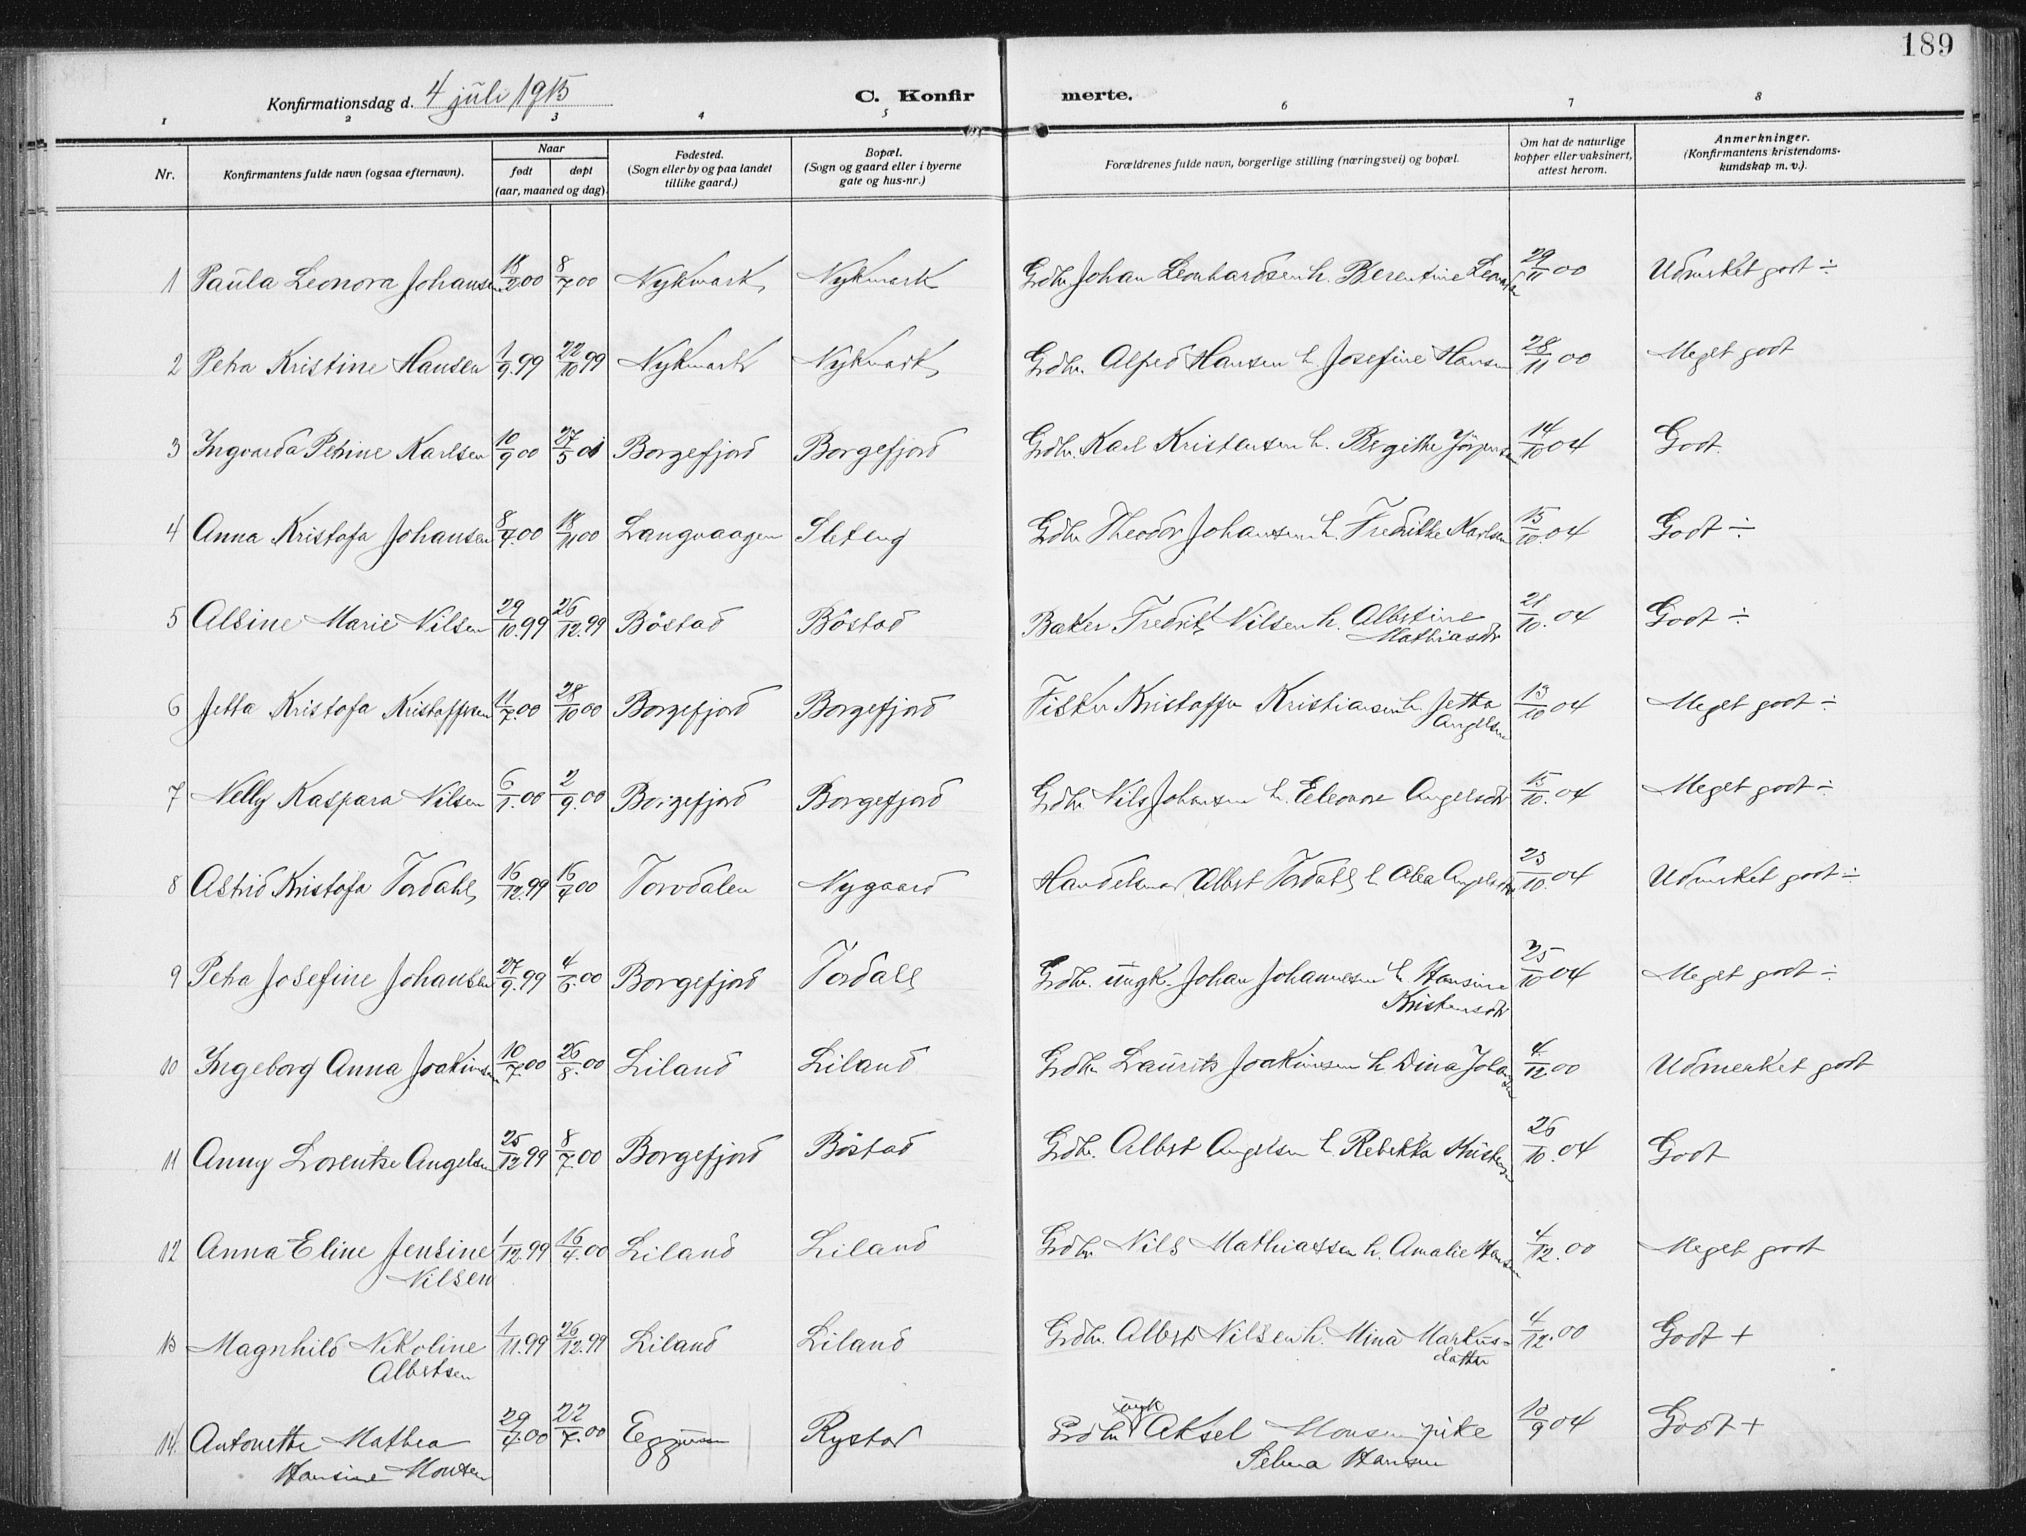 189
Konfirmationsdag d. 4 juli 1915
C. Konfir merte.
1 2 3 4 5 6 7 8
Nr.
Konfirmantens fulde navn (ogsaa efternavn).
Naar
født døpt
(aar, maaned og dag).
Fødested.
(Sogn eller by og paa landet
tillike gaard.)
Bopæl.
(Sogn og gaard eller i byerne
gate og hus-nr.)
Forældrenes fulde navn, borgerlige stilling (næringsvei) og bopæl.
Om hat de naturlige
kopper eller vaksinert,
attest herom.
Anmerkninger.
(Konfirmantens kristendoms-
kundskap m. v.).
1 Paula Leonora Johansen 18/2 00 8/7 00 Nykmark Nykmark Grdbr. Johan Leonhardsen h. Berentine 29/11 00 Udmerket godt ÷
2 Petra Kristine Hansen 1/9 99 22/10 99 Nykmark Nykmark Grdbr. Alfred Hansen h. Josefine Hansen 28/11 00 Meget godt
3 Ingvarda Petrine Karlsen 10/9 00 27/5 01 Borgefjord Borgefjord Grdbr. Karl Kristensen h. Bergithe Jörgensen 14/10 04 Godt.
4 Anna Kristofa Johansen 8/7 00 18/11 00 Langvaagen Sleteng Grdbr Theodor Johansen h. Fredrikke Karlsen 15/10 04 Godt ÷
5 Alsine Marie Nilsen 29/10 99 26/12 99 Böstad Böstad Baker Fredrik Nilsen h. Albertine
Mathiasdtr 21/10 04 Godt ÷
6 Jetta Kristofa Kristoffersen 11/7 00 28/10 00 Borgefjord Borgefjord Fisker Kristoffer Kristiansen h. Jetta
Angelsen 13/10 04 Meget godt ÷
7 Nelly Kaspara Nilsen 6/1 00 2/9 00 Borgefjord Borgefjord Grdbr. Nils Johansen h. Eleonore Angelsdtr 15/10 04 Meget godt ÷
8 Astrid Kristofa Tordahl 16/12 99 16/4 00 Torvdalen Nygaard Handelsman Albert Tordahl h. Alea Angelsdtr 23/10 04 Udmerket godt ÷
9 Petra Josefine Johansen 27/9 99 4/6 00 Borgefjord Tordahl Grdbr. ungk. Johan Johannesen h. Hansine
Kristensdtr 25/10 04 Meget godt ÷
10 Ingeborg Anna Joakimsen 10/7 00 26/8 00 Liland Liland Grdbr Laurits Joakimsen h. Dina Johansen 4/12 00 Udmerket godt
11 Anny Lorentse Angelsen 25/12 99 8/7 00 Borgefjord Böstad Grdbr. Albert Angelsen h. Rebekka Kristensen 26/10 04 Godt
12 Anna Eline Jensine
Nilsen 1/12 99 16/4 00 Liland Liland Grdbr. Nils Mathiassen h. Amalie Hansen 4/12 00 Meget godt
13 Magnhild Nikoline
Albertsen 1/11 99 26/12 99 Liland Liland Grdbr. Albert Nilsen h. Mina Markus-
datter 4/12 00 Godt +
14. Antonette Mathea
Hansine Monsen 29/4 00 22/7 00 Eggum Rystad Grdbr. ungk Aksel Monsen pike
Selma Hansen 10/9 04 Godt +